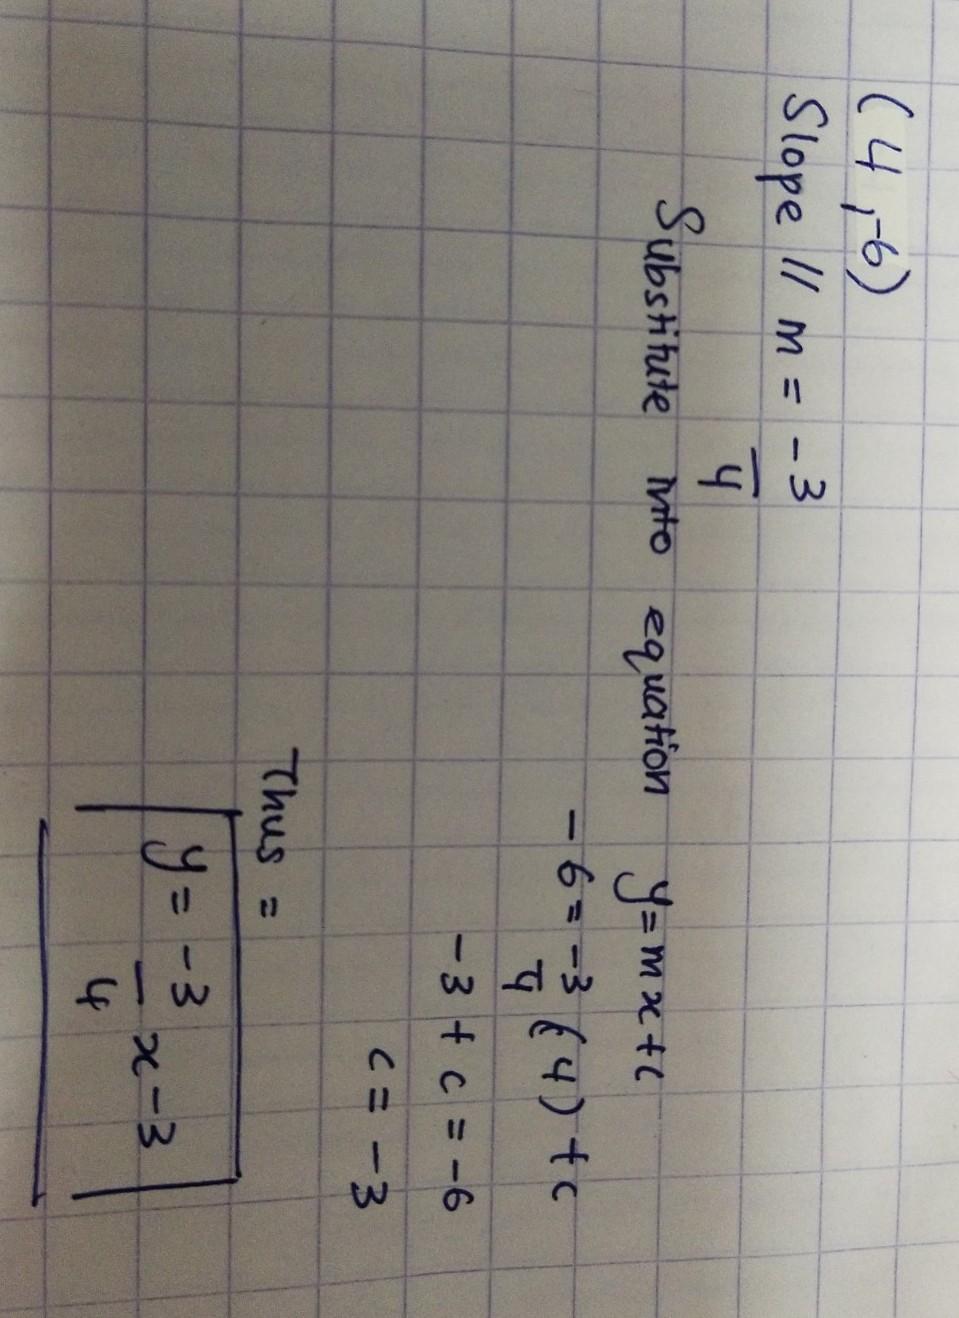 (4,-6)
Slope // m = -3/4
Substitute into equation y=mx+c
-6 = -3/4 (4) + c
-3 + c = -6
c = -3
Thus =
y = -3/4 x - 3